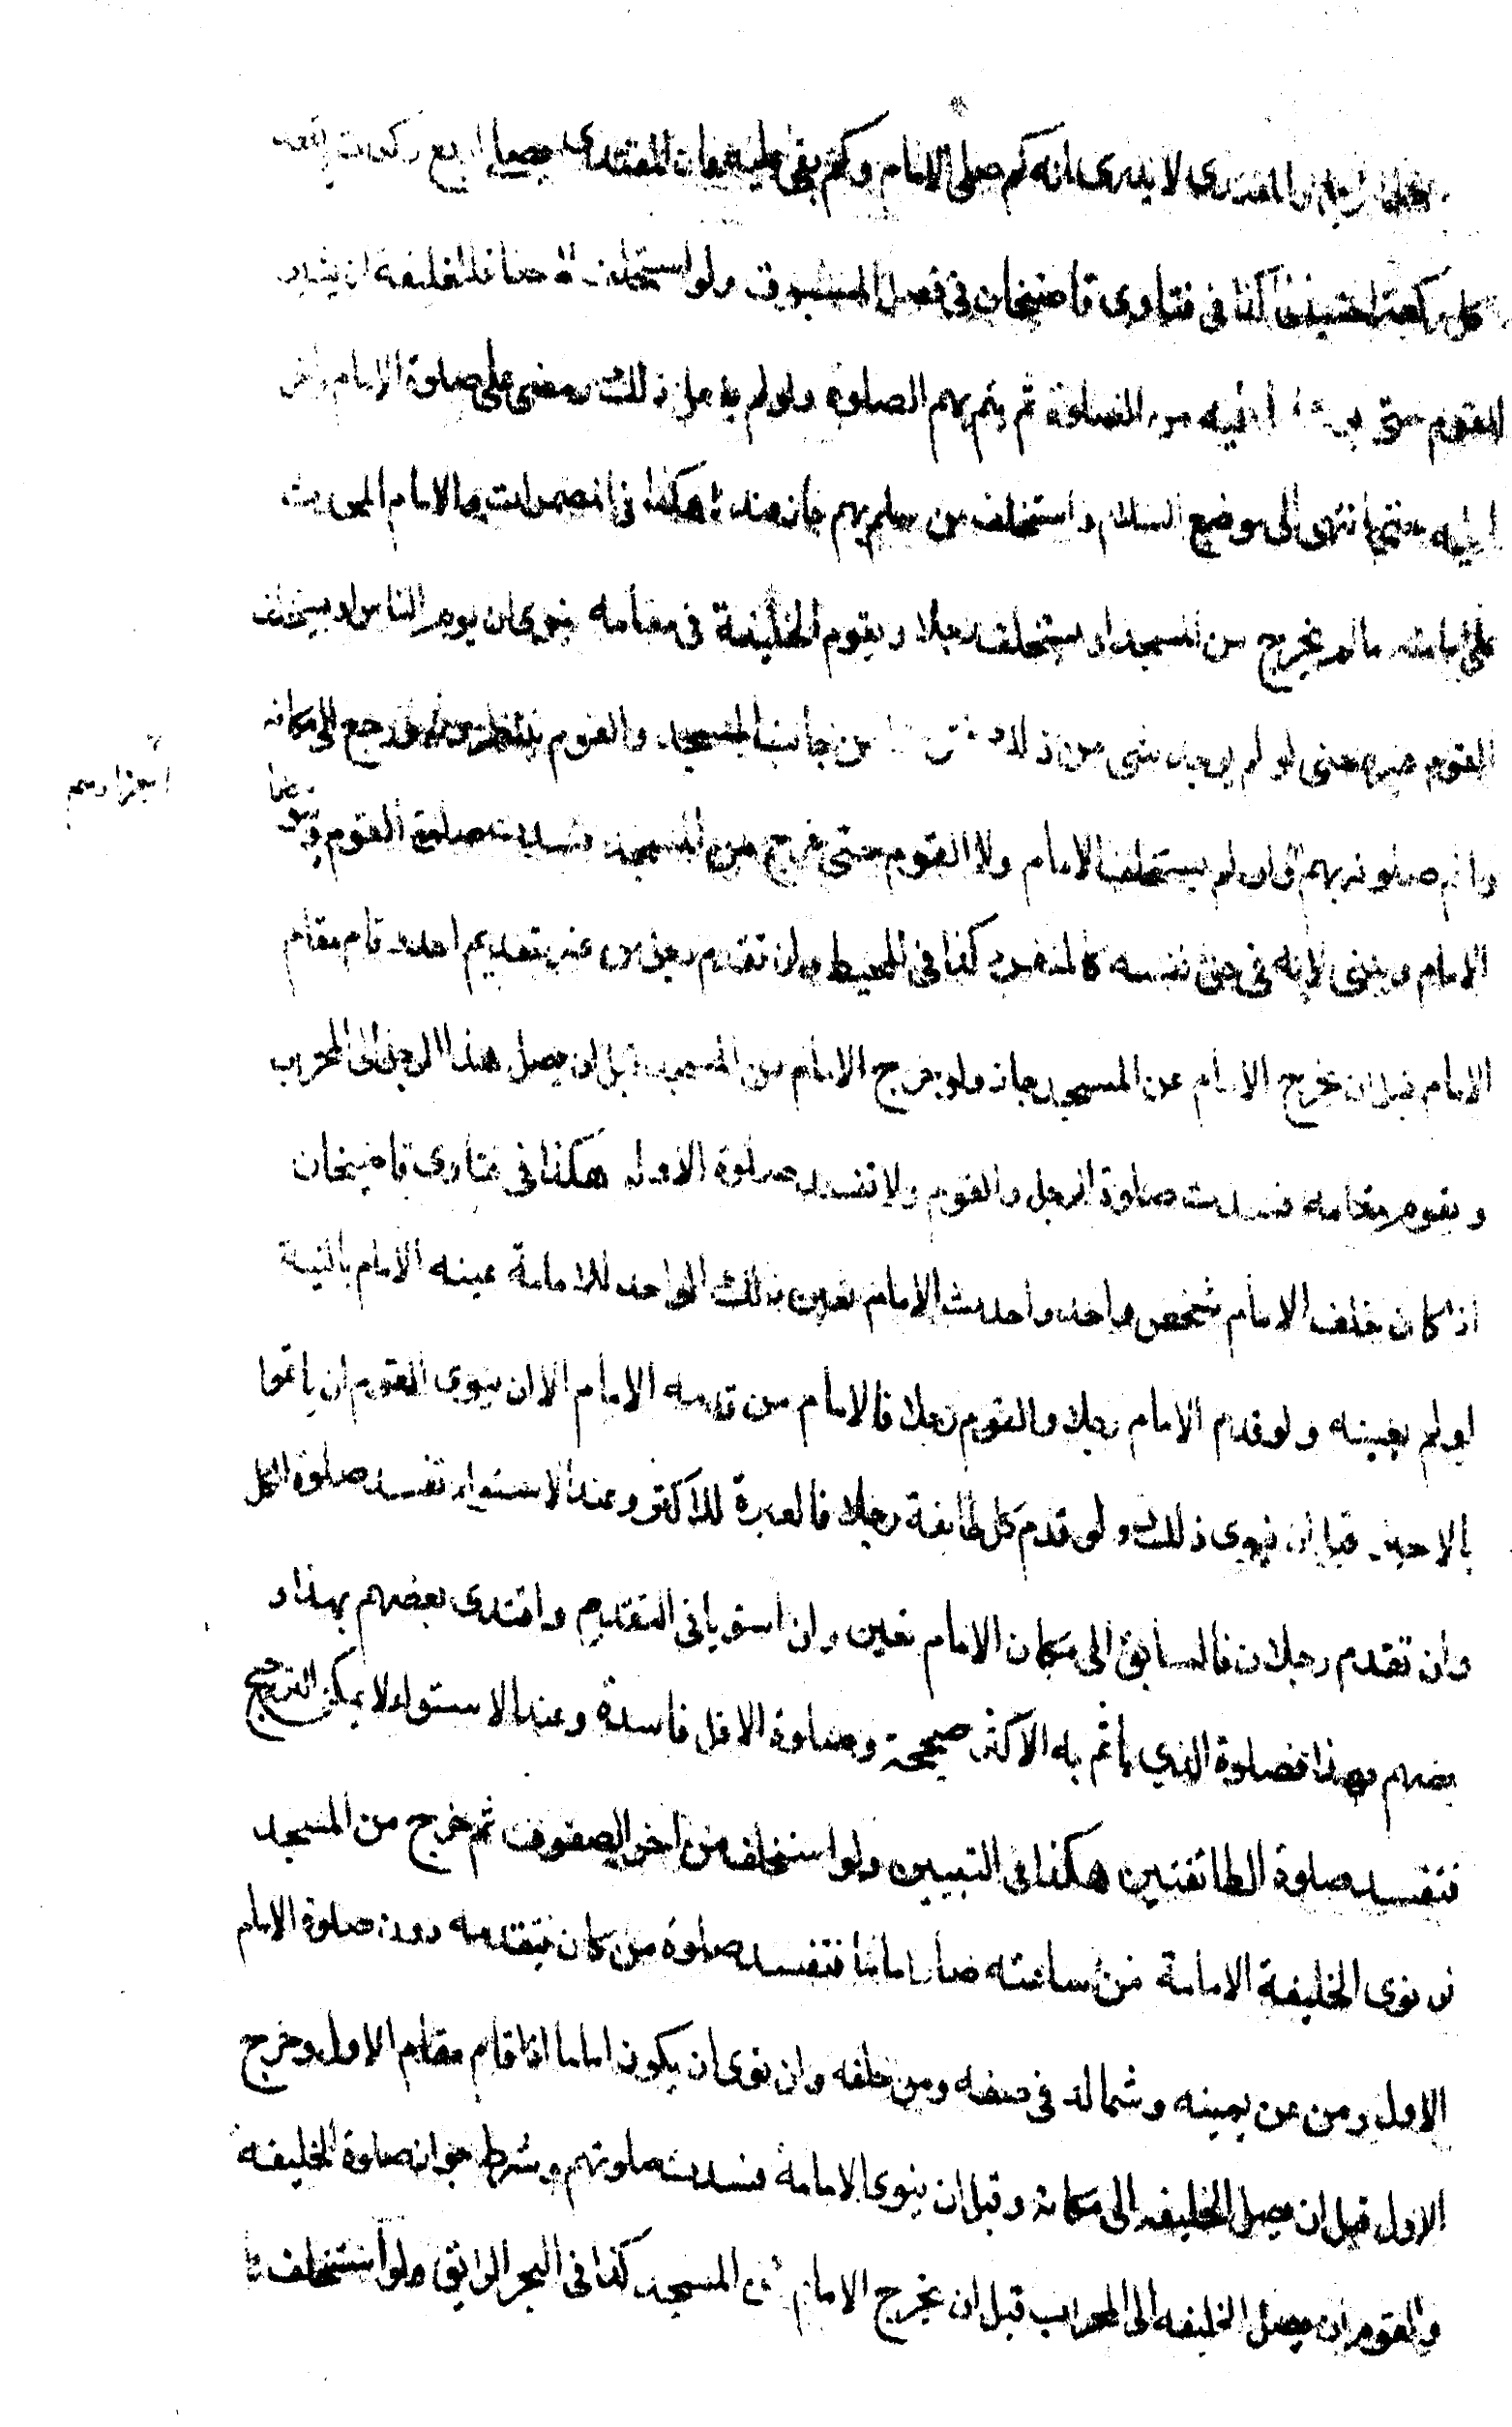 المقتدى لا يدرى انه كم صلى الامام وكم بقى عليه فان المقتدى يصلى اربع ركعات يقعد
كل ركعة احتياطا كذا فى فتاوى قاضيخان فى فصل المسبوق ولو استخلف لاحقا فللخليفة ان يشير
القوم حتى يؤدى ما عليه من الصلوة ثم يتم بهم الصلوة ولو لم يفعل ذلك ومضى على صلوة الامام واخر
ما عليه حتى انتهى الى موضع السلام واستخلف من سلم بهم جاز عندنا هكذا فى المضمرات والامام المحدث
على امامته ما لم يخرج من المسجد او يستخلف رجلا ويقوم الخليفة فى مقامه ينوى ان يوم الناس او يستخلف
القوم غيره حتى لو لم يوجد شى من ذلك من جانب المسجد والقوم ينتظرونه ورجع الى مكانه
واتم صلوته بهم وان لم يستخلف الامام ولا القوم حتى خرج من المسجد فسدت صلوة القوم ويتوضا
الامام ويبنى لانه فى حق نفسه كالمنفرد كذا فى المحيط وان تقدم رجل من غير تقديم احد وقام مقام
الامام قبل ان يخرج الامام عن المسجد جاز ولو خرج الامام من المسجد قبل ان يصل هذا الرجل الى المحراب
ويقوم مقامه فسدت صلوة الرجل والقوم ولا تفسد صلوة الاول هكذا فى فتاوى قاضيخان
اذا كان خلف الامام شخص واحد واحدث الامام تعين ذلك الواحد للامامة عينه الامام بالنية
او لم يعينه ولو قدم الامام رجلا والقوم رجلا فالامام من قدمه الامام الا ان ينوى القوم ان ياتموا
بالاخر قبل ان ينوى ذلك ولو قدم كل طايفة رجلا فالعبرة للاكثر وعند الاستواء تفسد صلوة الكل
وان تقدم رجلان فالسابق الى مكان الامام تعين وان استويا فى التقديم واقتدى بعضهم بهذا و
بعضهم بهذا فصلوة الذي ياتم به الاكثر صحيحة وصلوة الاقل فاسدة وعند الاستواء لا يمكن الترجيح
فتفسد صلوة الطائفتين هكذا فى التبيين ولو استخلف من اخر الصفوف ثم خرج من المسجد
ان نوى الخليفة الامامة من ساعته صار اماما فتفسد صلوة من كان يتقدمه دون صلوة الامام
الاول ومن عن يمينه وشماله فى صفه ومن خلفه وان نوى ان يكون اماما اذا قام مقام الاول وخرج
الاول قبل ان يصل الخليفه الى مكانه وقبل ان ينوى الامامة فسدت صلوتهم وشرط جواز صلوة الخليفة
والقوم ان يصل الخليفه الى المحراب قبل ان يخرج الامام عن المسجد كذا فى البحر الرايق ولو استخلف